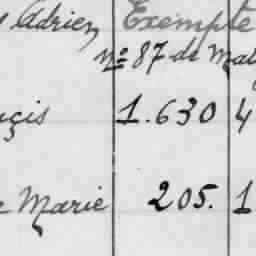 Adrien Exempté
No 87 de Mat
çis 1.630 4
Marie 205. 1